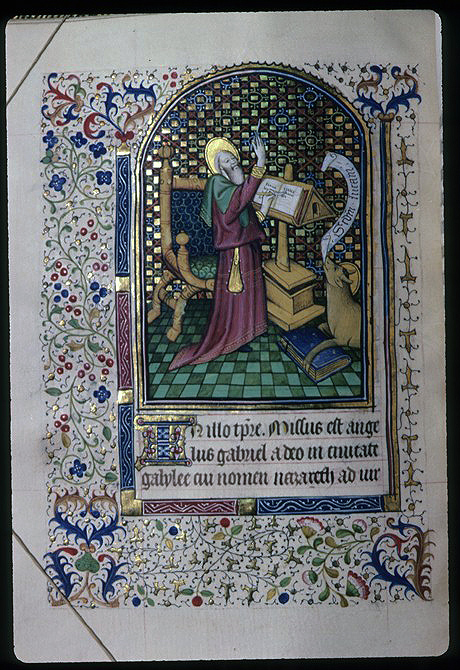 In illo tpre. Missus est ange
lus gabriel a deo in civitate
galylee cui nomen nazareth ad vir